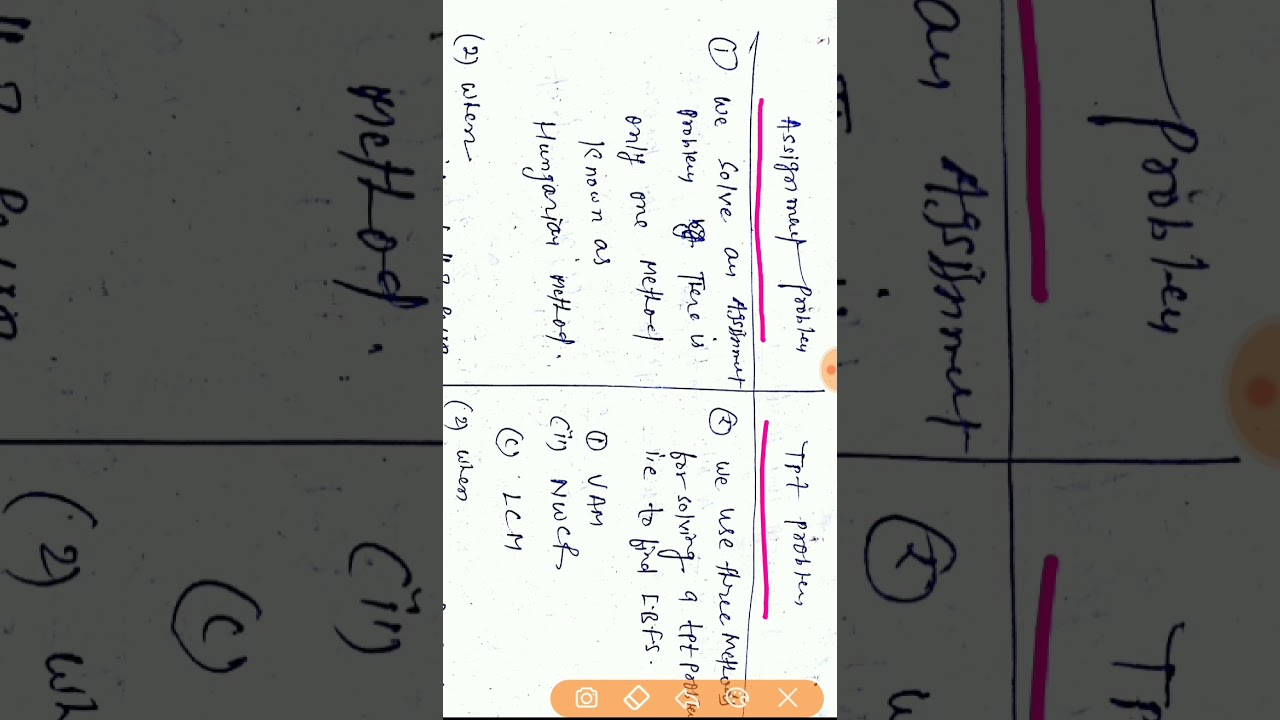 Assignment Problem
① We solve an Assinment
Problem There is
only one method
known as
Hungarian method.
(2) when
Tpt problem
we use three Methods
for solving a tpt Problem
i.e to find I.B.F.S.
① VAM
(ii) NWCR
(c) LCM
(2) when